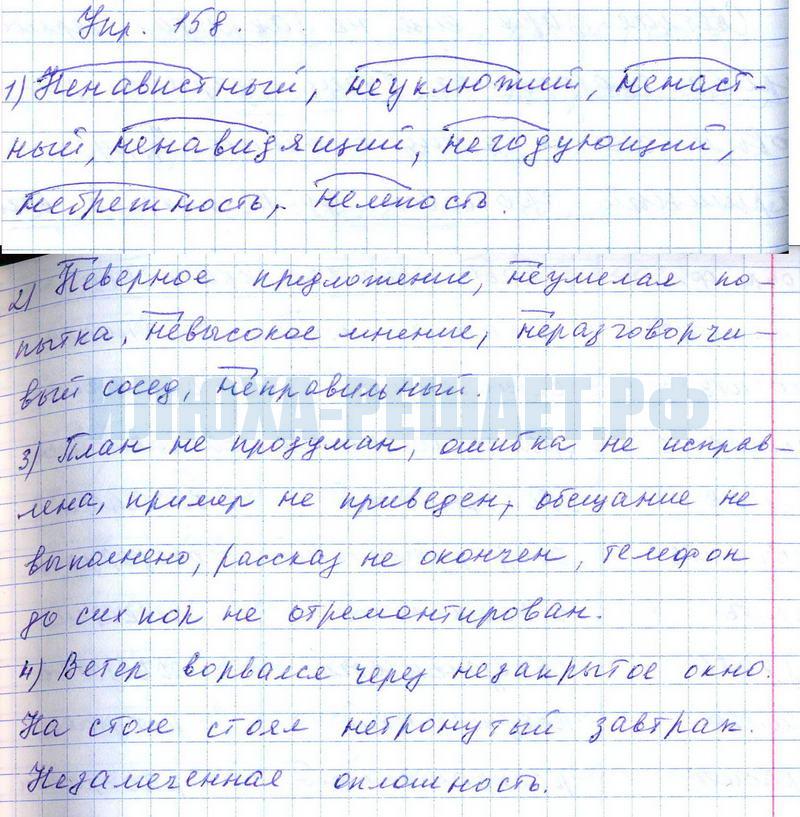 Упр. 158.
1) Ненавистный, неуклюжий, ненаст-
ный, ненавидящий, негодующий,
небрежность, нелепость.
2) Неверное предложение, неумелая по-
пытка, невысокое мнение, неразговорчи-
вый сосед, неправильный.
ИЛЮХА-РЕШАЕТ.РФ
3) План не продуман, ошибка не исправ-
лена, пример не приведен, обещание не
выполнено, рассказ не окончен, телефон
до сих пор не отремонтирован.
4) Ветер ворвался через незакрытое окно.
На столе стоял нетронутый завтрак.
Незамеченная оплошность.